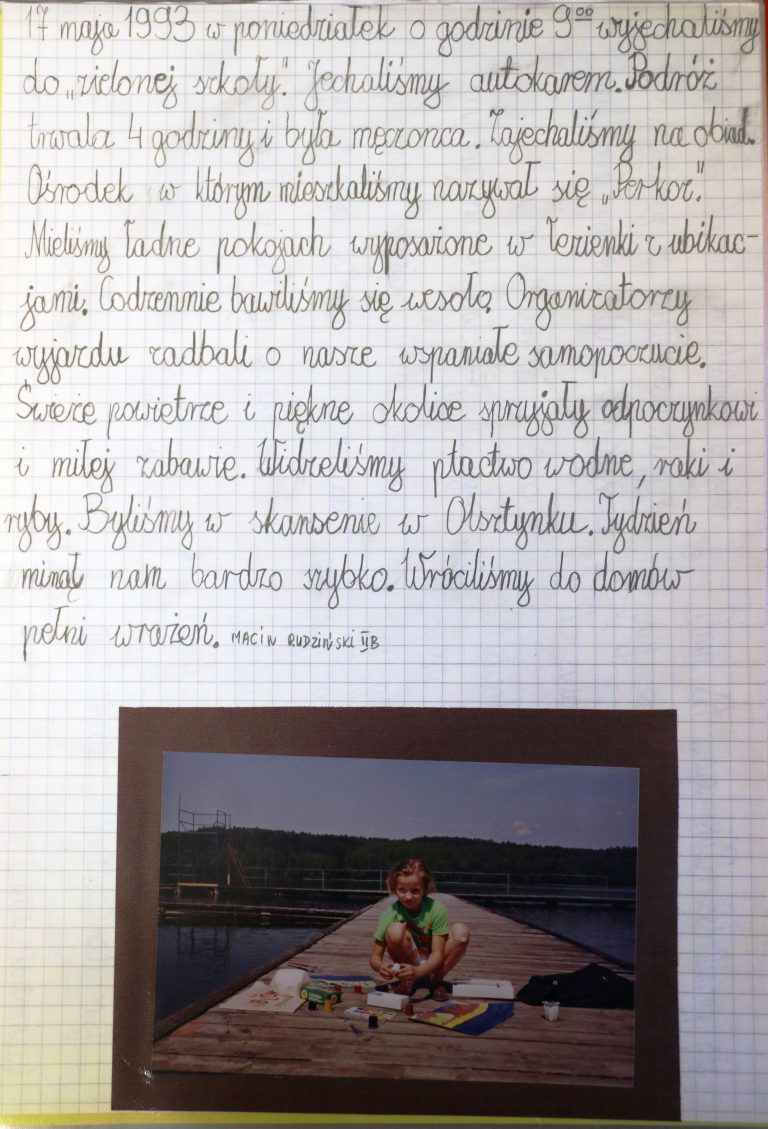 17 maja 1993 w poniedziałek o godzinie 9⁰⁰ wyjechaliśmy
do „zielonej szkoły". Jechaliśmy autokarem. Podróż
trwała 4 godziny i była męczonca. Zajechaliśmy na obiad.
Ośrodek w którym mieszkaliśmy nazywał się „Perkoz".
Mieliśmy ładne pokojach wyposażone w łezienki z ubikac-
jami. Codzennie bawiliśmy się wesoło. Organizatorzy
wyjazdu zadbali o nasze wspaniałe samopoczucie.
Świeże powietrze i piękne okolice sprzyjały odpoczynkowi
i miłej zabawie. Widzeliśmy ptactwo wodne, raki i
ryby. Byliśmy w skansenie w Olsztynku. Tydzień
minął nam bardzo szybko. Wróciliśmy do domów
pełni wrażeń. MACIN RUDZIŃSKI IIB